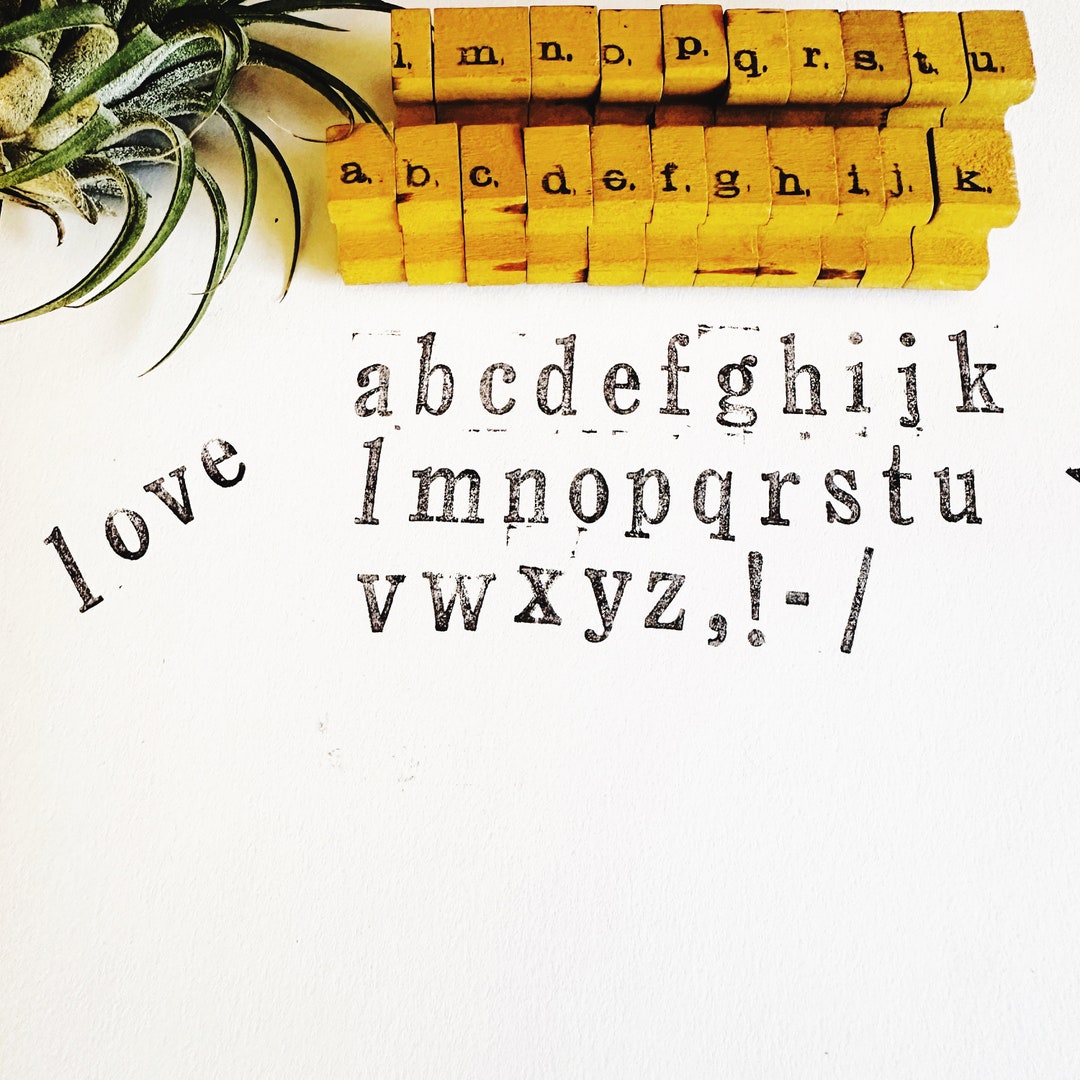 l. m. n. o. p. q. r. s. t. u.
a. b. c. d. e. f. g. h. i. j. k.
abcdefghijk
lmnopqrstu
vwxyz,!-/
love